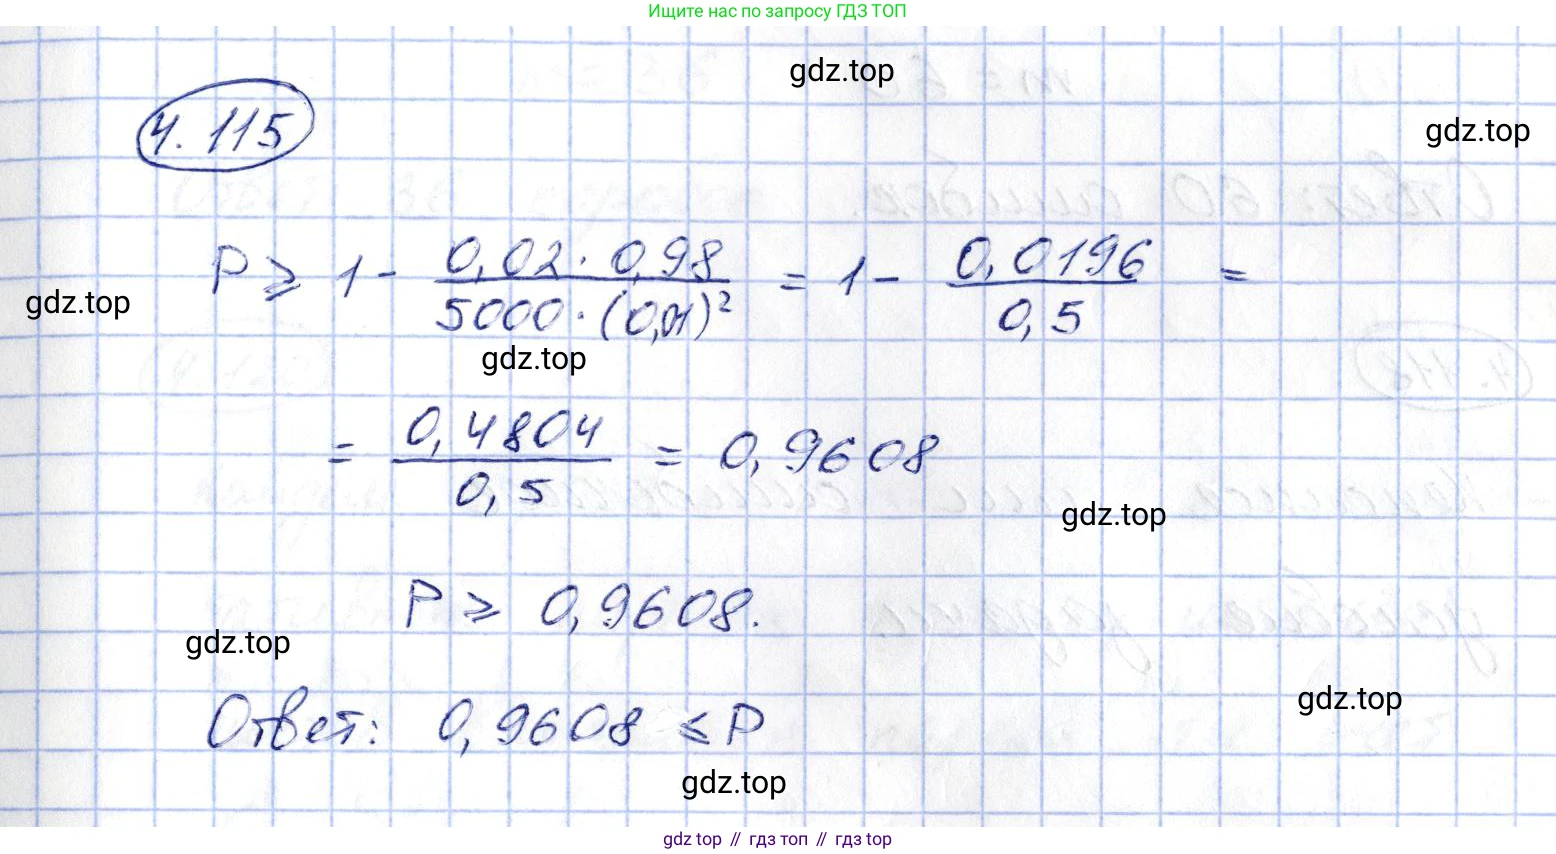 Ищите нас по запросу ГДЗ ТОП
gdz.top
gdz.top
4.115
P ≥ 1 - 0,02 · 0,98 / 5000 · (0,01)² = 1 - 0,0196 / 0,5 =
gdz.top
gdz.top
= 0,4804 / 0,5 = 0,9608
gdz.top
P ≥ 0,9608.
gdz.top
gdz.top
Ответ: 0,9608 ≤ P
gdz.top
gdz top // гдз топ // gdz.top